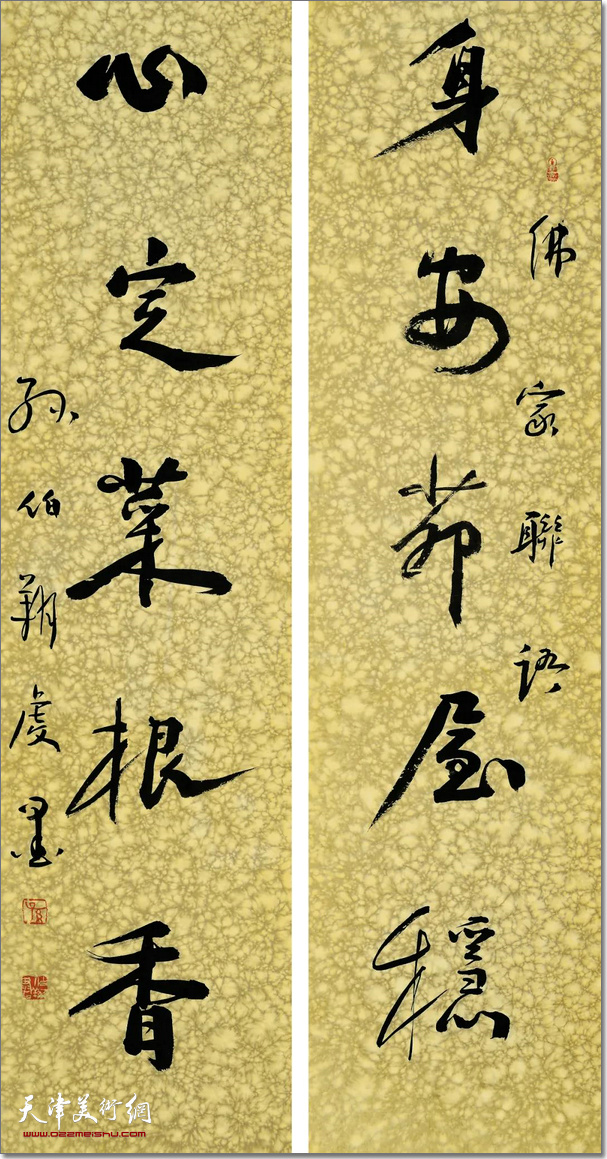 身安茆屋穩
佛家聯語
心定菜根香
孫伯翔虔墨
天津美術網
www.022meishu.com